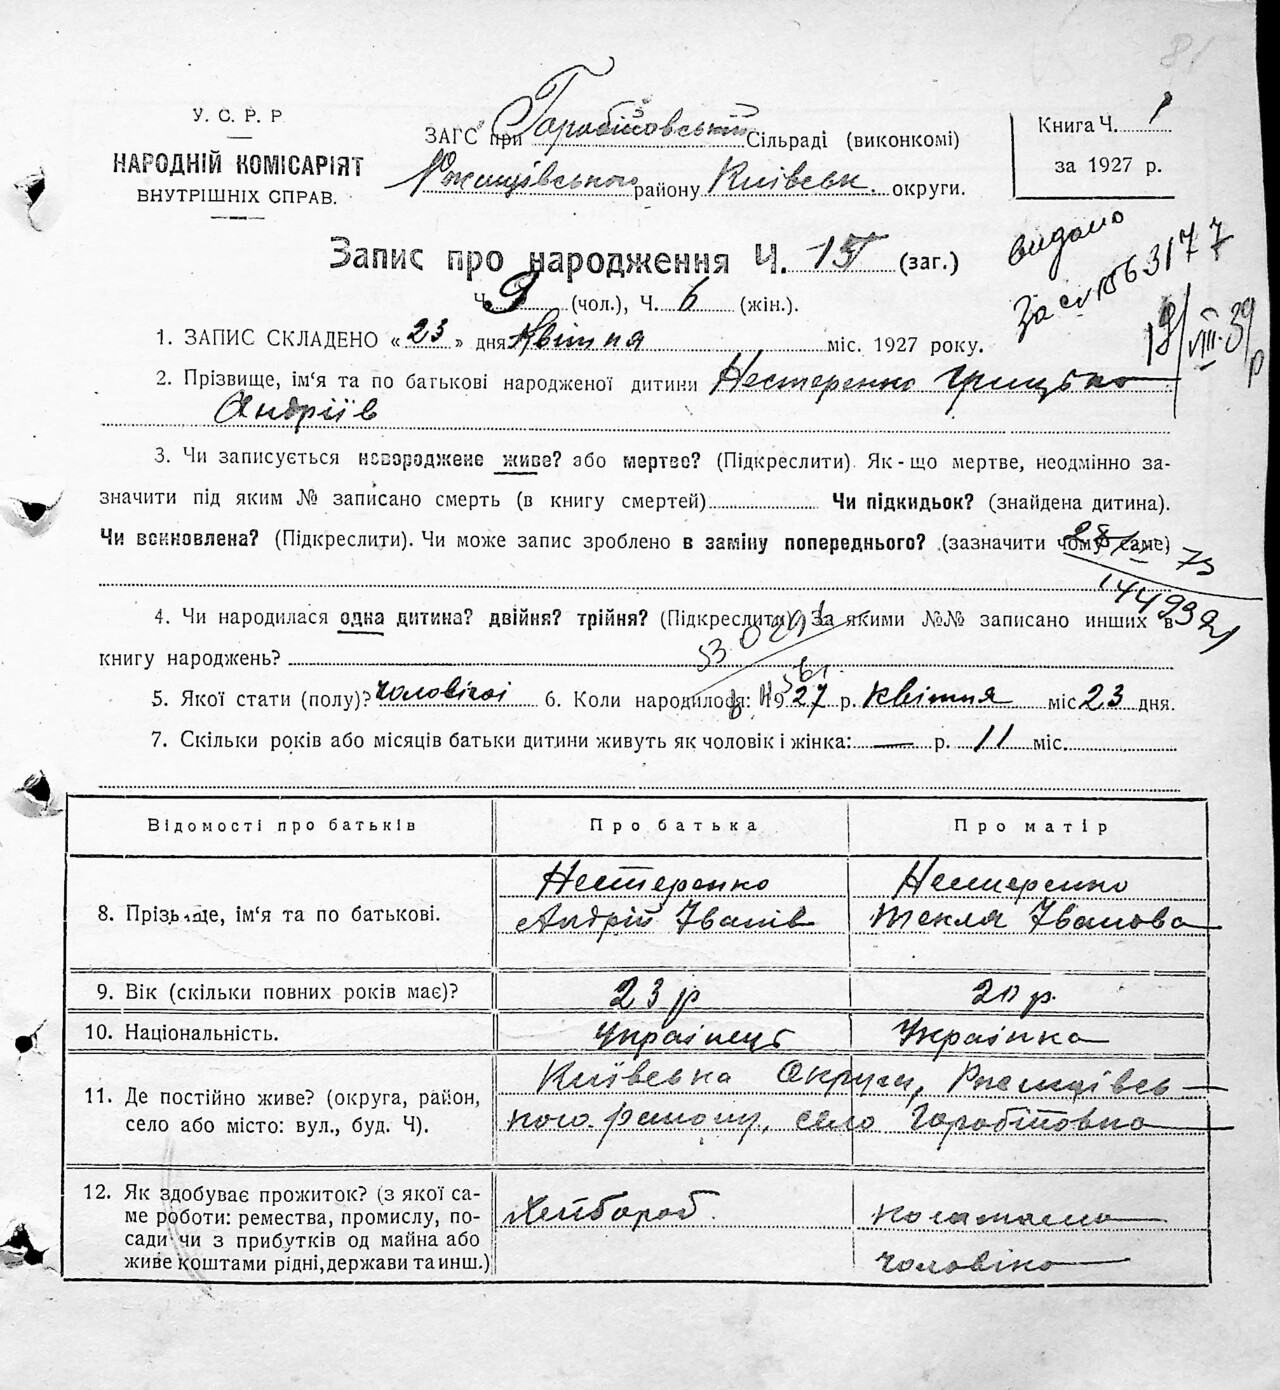 81
У. С. Р. Р
НАРОДНІЙ КОМІСАРІЯТ
ВНУТРІШНІХ СПРАВ.
ЗАГС при Сільраді (виконкомі)
Ржищівського району Київськ. округи.
Книга Ч. 1
за 1927 р.
Запис про народження Ч. 15 (заг.)
Ч. 9 (чол.), Ч. 6 (жін.).
видано
18/VIII-39р
1. ЗАПИС СКЛАДЕНО « 23 » дня Квітня міс. 1927 року.
2. Прізвище, ім'я та по батькові народженої дитини Нестеренко Грицько
Андріїв
3. Чи записується новороджене живе? або мертве? (Підкреслити). Як-що мертве, неодмінно за-
значити під яким № записано смерть (в книгу смертей) Чи підкидьок? (знайдена дитина).
Чи всиновлена? (Підкреслити). Чи може запис зроблено в заміну попереднього? (зазначити чому саме)
4. Чи народилася одна дитина? двійня? трійня? (Підкреслити) За якими №№ записано инших в
книгу народжень?
5. Якої стати (полу)? чоловічої 6. Коли народилося: 1927 р. Квітня міс 23 дня.
7. Скільки років або місяців батьки дитини живуть як чоловік і жінка: — р. 11 міс.
Відомості про батьків Про батька Про матір
8. Прізвище, ім'я та по батькові. Нестеренко Андрій Іванів Нестеренко Текля Іванова
9. Вік (скільки повних років має)? 23 р 20 р.
10. Національність. Українець Українка
11. Де постійно живе? (округа, район, Київська Округи, Ржищівсь-
село або місто: вул., буд. Ч). кого району, село
12. Як здобуває прожиток? (з якої са- Хлібороб.
ме роботи: ремества, промислу, по-
сади чи з прибутків од майна або
живе коштами рідні, держави та инш.) чоловіка